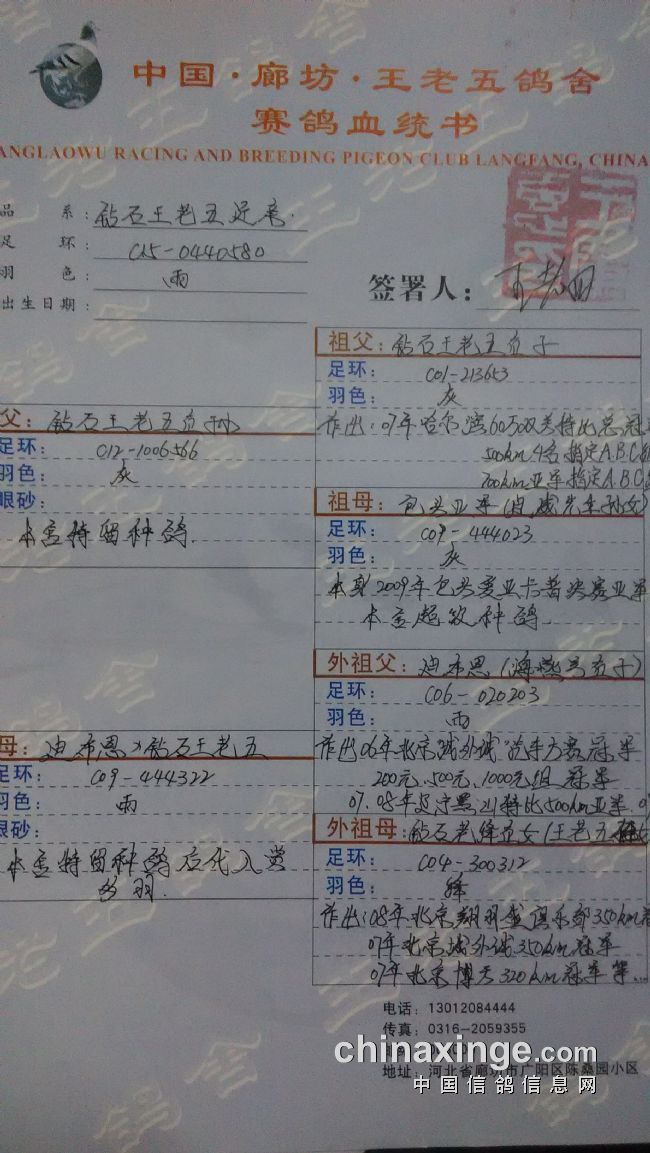 中国·廊坊·王老五鸽舍
赛鸽血统书
ANGLAOWU RACING AND BREEDING PIGEON CLUB LANGFANG, CHINA
品 系: 钻石王老五近亲.
足 环: C15-0440580
羽 色: 雨
出生日期:
签署人:
祖父: 钻石王老五直子
足环: C01-213653
羽色: 灰
作出: 07年哈尔滨
500km 4名 指定A.B.C
700km亚军指定A.B.C
父: 钻石王老五直孙
足环: C12-1006566
羽色: 灰
眼砂:
本舍特留种鸽
祖母: 包头亚军
足环: C09-444023
羽色: 灰
本身2009年包头赛亚卡普决赛亚军
本舍超级种鸽
外祖父: 迪布恩(海燕号直子)
足环: C06-020203
羽色: 雨
作出06年北京城外城"汽车大赛冠军
200元、500元、1000元组冠军
07.08年 特比500km亚军.
母: 迪布恩×钻石王老五
足环: C09-444322
羽色: 雨
眼砂:
本舍特留种鸽后代入赏
多羽.
外祖母: 钻石老绛直女(王老五
足环: C04-300312
羽色: 绛
作出:08年北京翔羽盛俱乐部350km
07年北京城外城350km冠军
07年北京博天320km冠军等...
电话: 13012084444
传真: 0316-2059355
地址: 河北省廊坊市广阳区陈桑园小区
chinaxinge.com
中国信鸽信息网